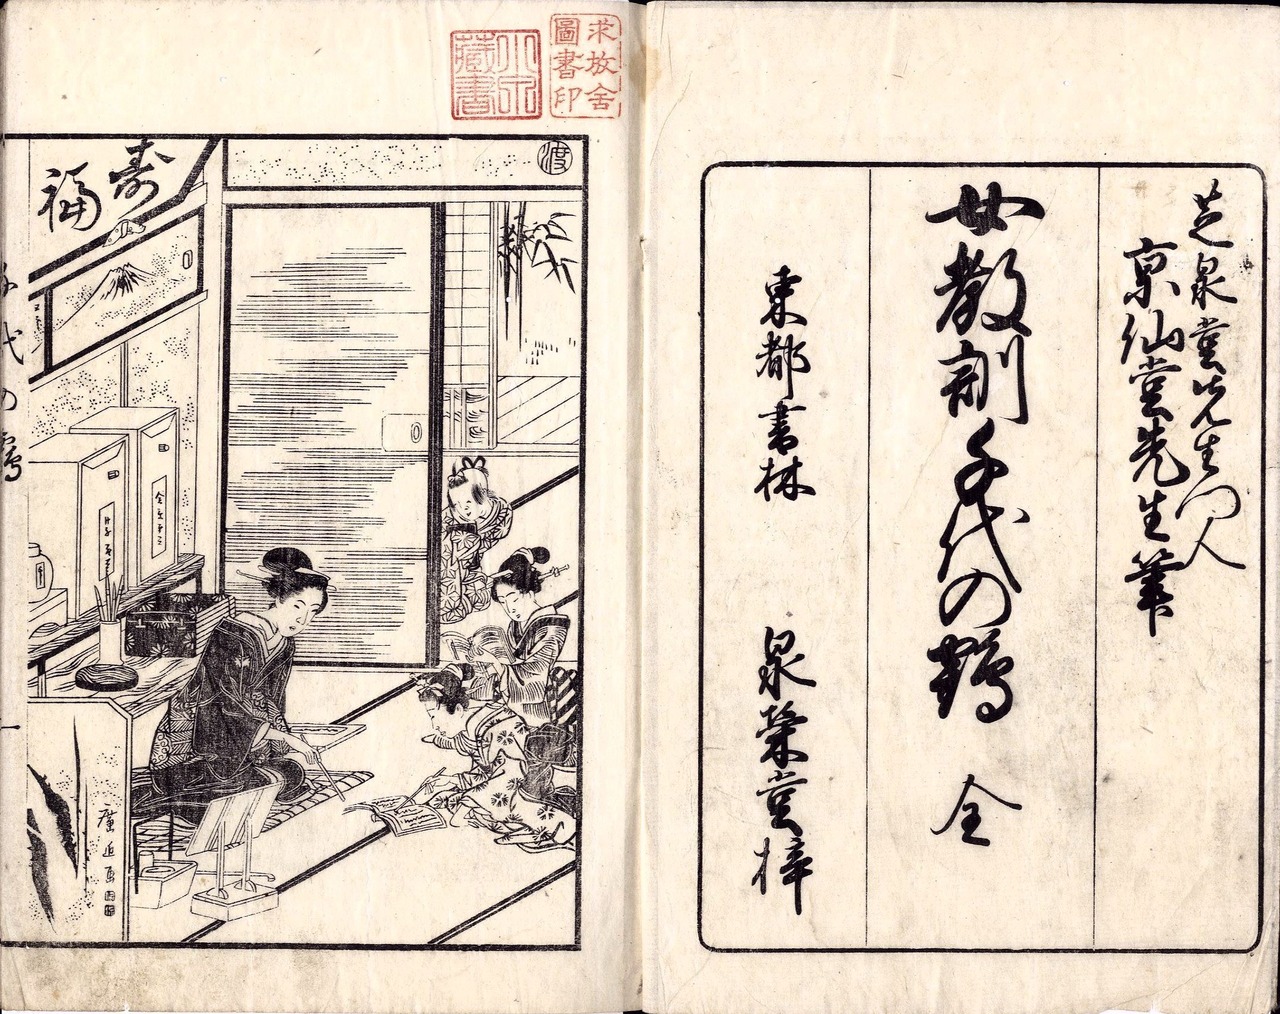 芝泉堂先生門人
泉仙堂先生筆
女教訓千代の鶴 全
東都書林 泉榮堂梓
求放舍
圖書印
藏書
渡
寿
福
千代の鶴
一
廣近画